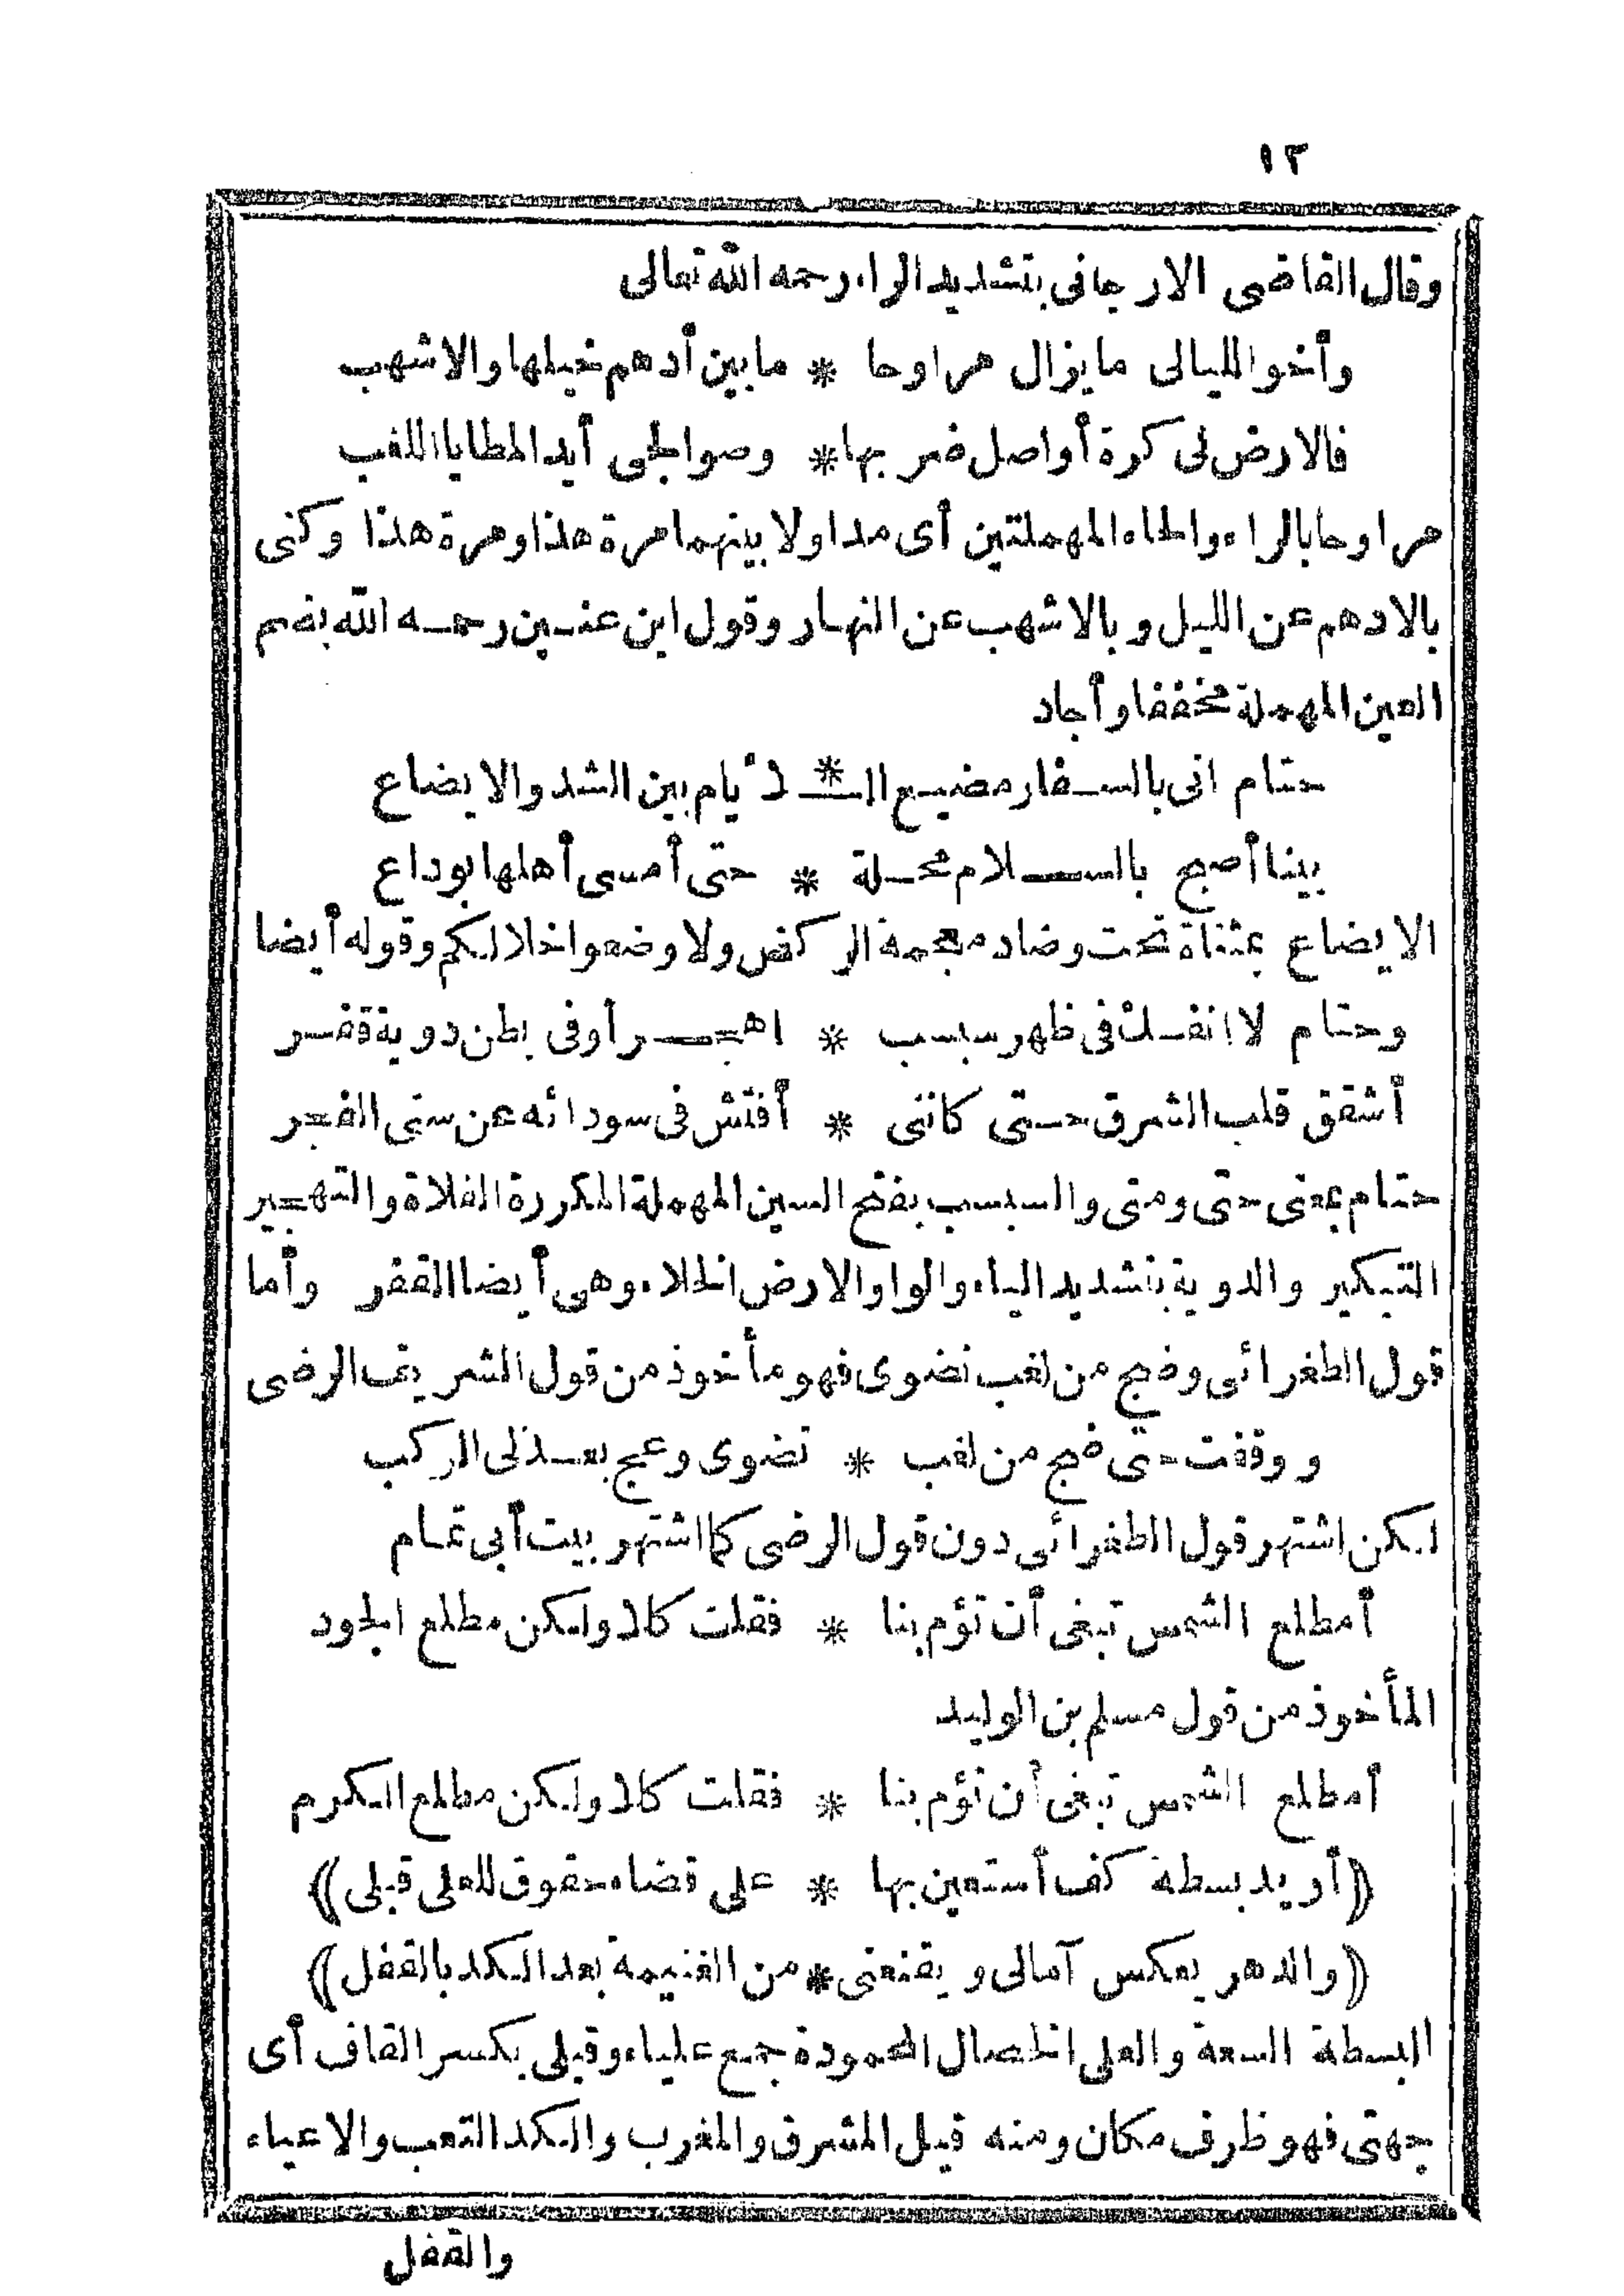 ١٢
وقال القاضى الارجانى بتشديد الراء رحمه الله تعالى
وأخو الليالى ما يزال مراوحا * ما بين أدهم خيلها والاشهب
فالارض لى كرة أواصل ضربها * وصوالجى أيد المطايا اللغب
مراوحا بالراء والحاء المهملتين أى مداولا بينهما مرة هذا ومرة هذا وكنى
بالادهم عن الليل وبالاشهب عن النهار وقول ابن عنين رحمه الله بضم
العين المهملة مخففا وأجاد
حتام انى بالسفار مضيع الـ * ـأيام بين الشد والايضاع
بينا أصبح بالسلام محلة * حتى أمسى أهلها بوداع
الايضاع بمثناة تحت وضاد معجمة الركض ولاوضعوا خلالكم وقوله أيضا
وحتام لا انفك فى ظهر سبسب * اهجر أو فى بطن دوية قفر
أشقق قلب الشرق حتى كاننى * أفتش فى سودائه عن سنى الفجر
حتام بمعنى حتى ومتى والسبسب بفتح السين المهملة المكررة الفلاة والتهجير
التبكير والدوية بتشديد الياء والواو الارض الخلاء وهى أيضا القفر وأما
قول الطغرائى وضج من لغب نضوى فهو مأخوذ من قول الشريف الرضى
ووقفت حتى ضج من لغب * نضوى وعج بعذلى الركب
لكن اشتهر قول الطغرائى دون قول الرضى كما اشتهر بيت أبى تمام
أمطلع الشمس تبغى أن تؤم بنا * فقلت كلا ولكن مطلع الجود
المأخوذ من قول مسلم بن الوليد
أمطلع الشمس تبغى أن تؤم بنا * فقلت كلا ولكن مطلع الكرم
﴿أريد بسطة كف أستعين بها * على قضاء حقوق للعلى قبلى﴾
﴿والدهر يعكس آمالى ويقنعنى * من الغنيمة بعد الكد بالقفل﴾
البسطة السعة والعلى الخصال المحمودة جمع علياء وقبلى بكسر القاف أى
جهتى فهو ظرف مكان ومنه قبل المشرق والمغرب والكد التعب والاعياء
والقفل